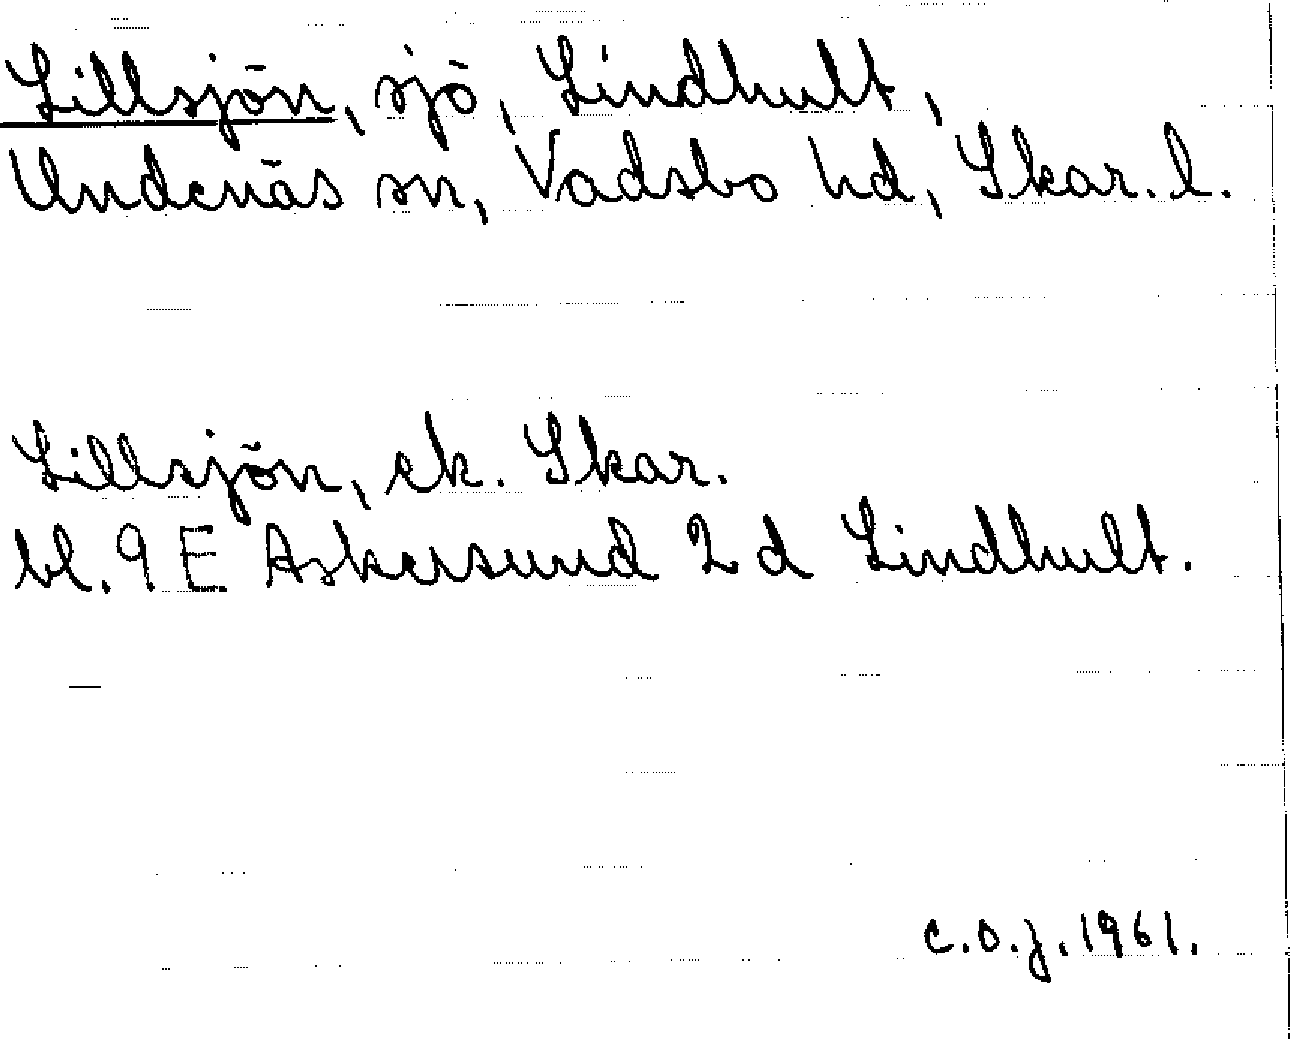 Lillsjön, sjö, Lindhult,
Undenäs sn, Vadsbo hd, Skar. l.
Lillsjön, ek. Skar.
bl. 9 E Askersund 2 d Lindhult.
C.O.J. 1961.